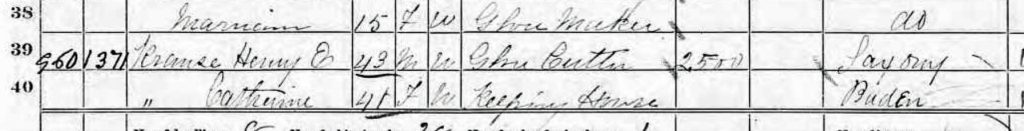 38 15 F W Glove Maker do
39 960 1371 Krause Henry E 43 M W Glove Cutter 2500 Saxony
40 " Catherine 41 F W Keeping House Baden